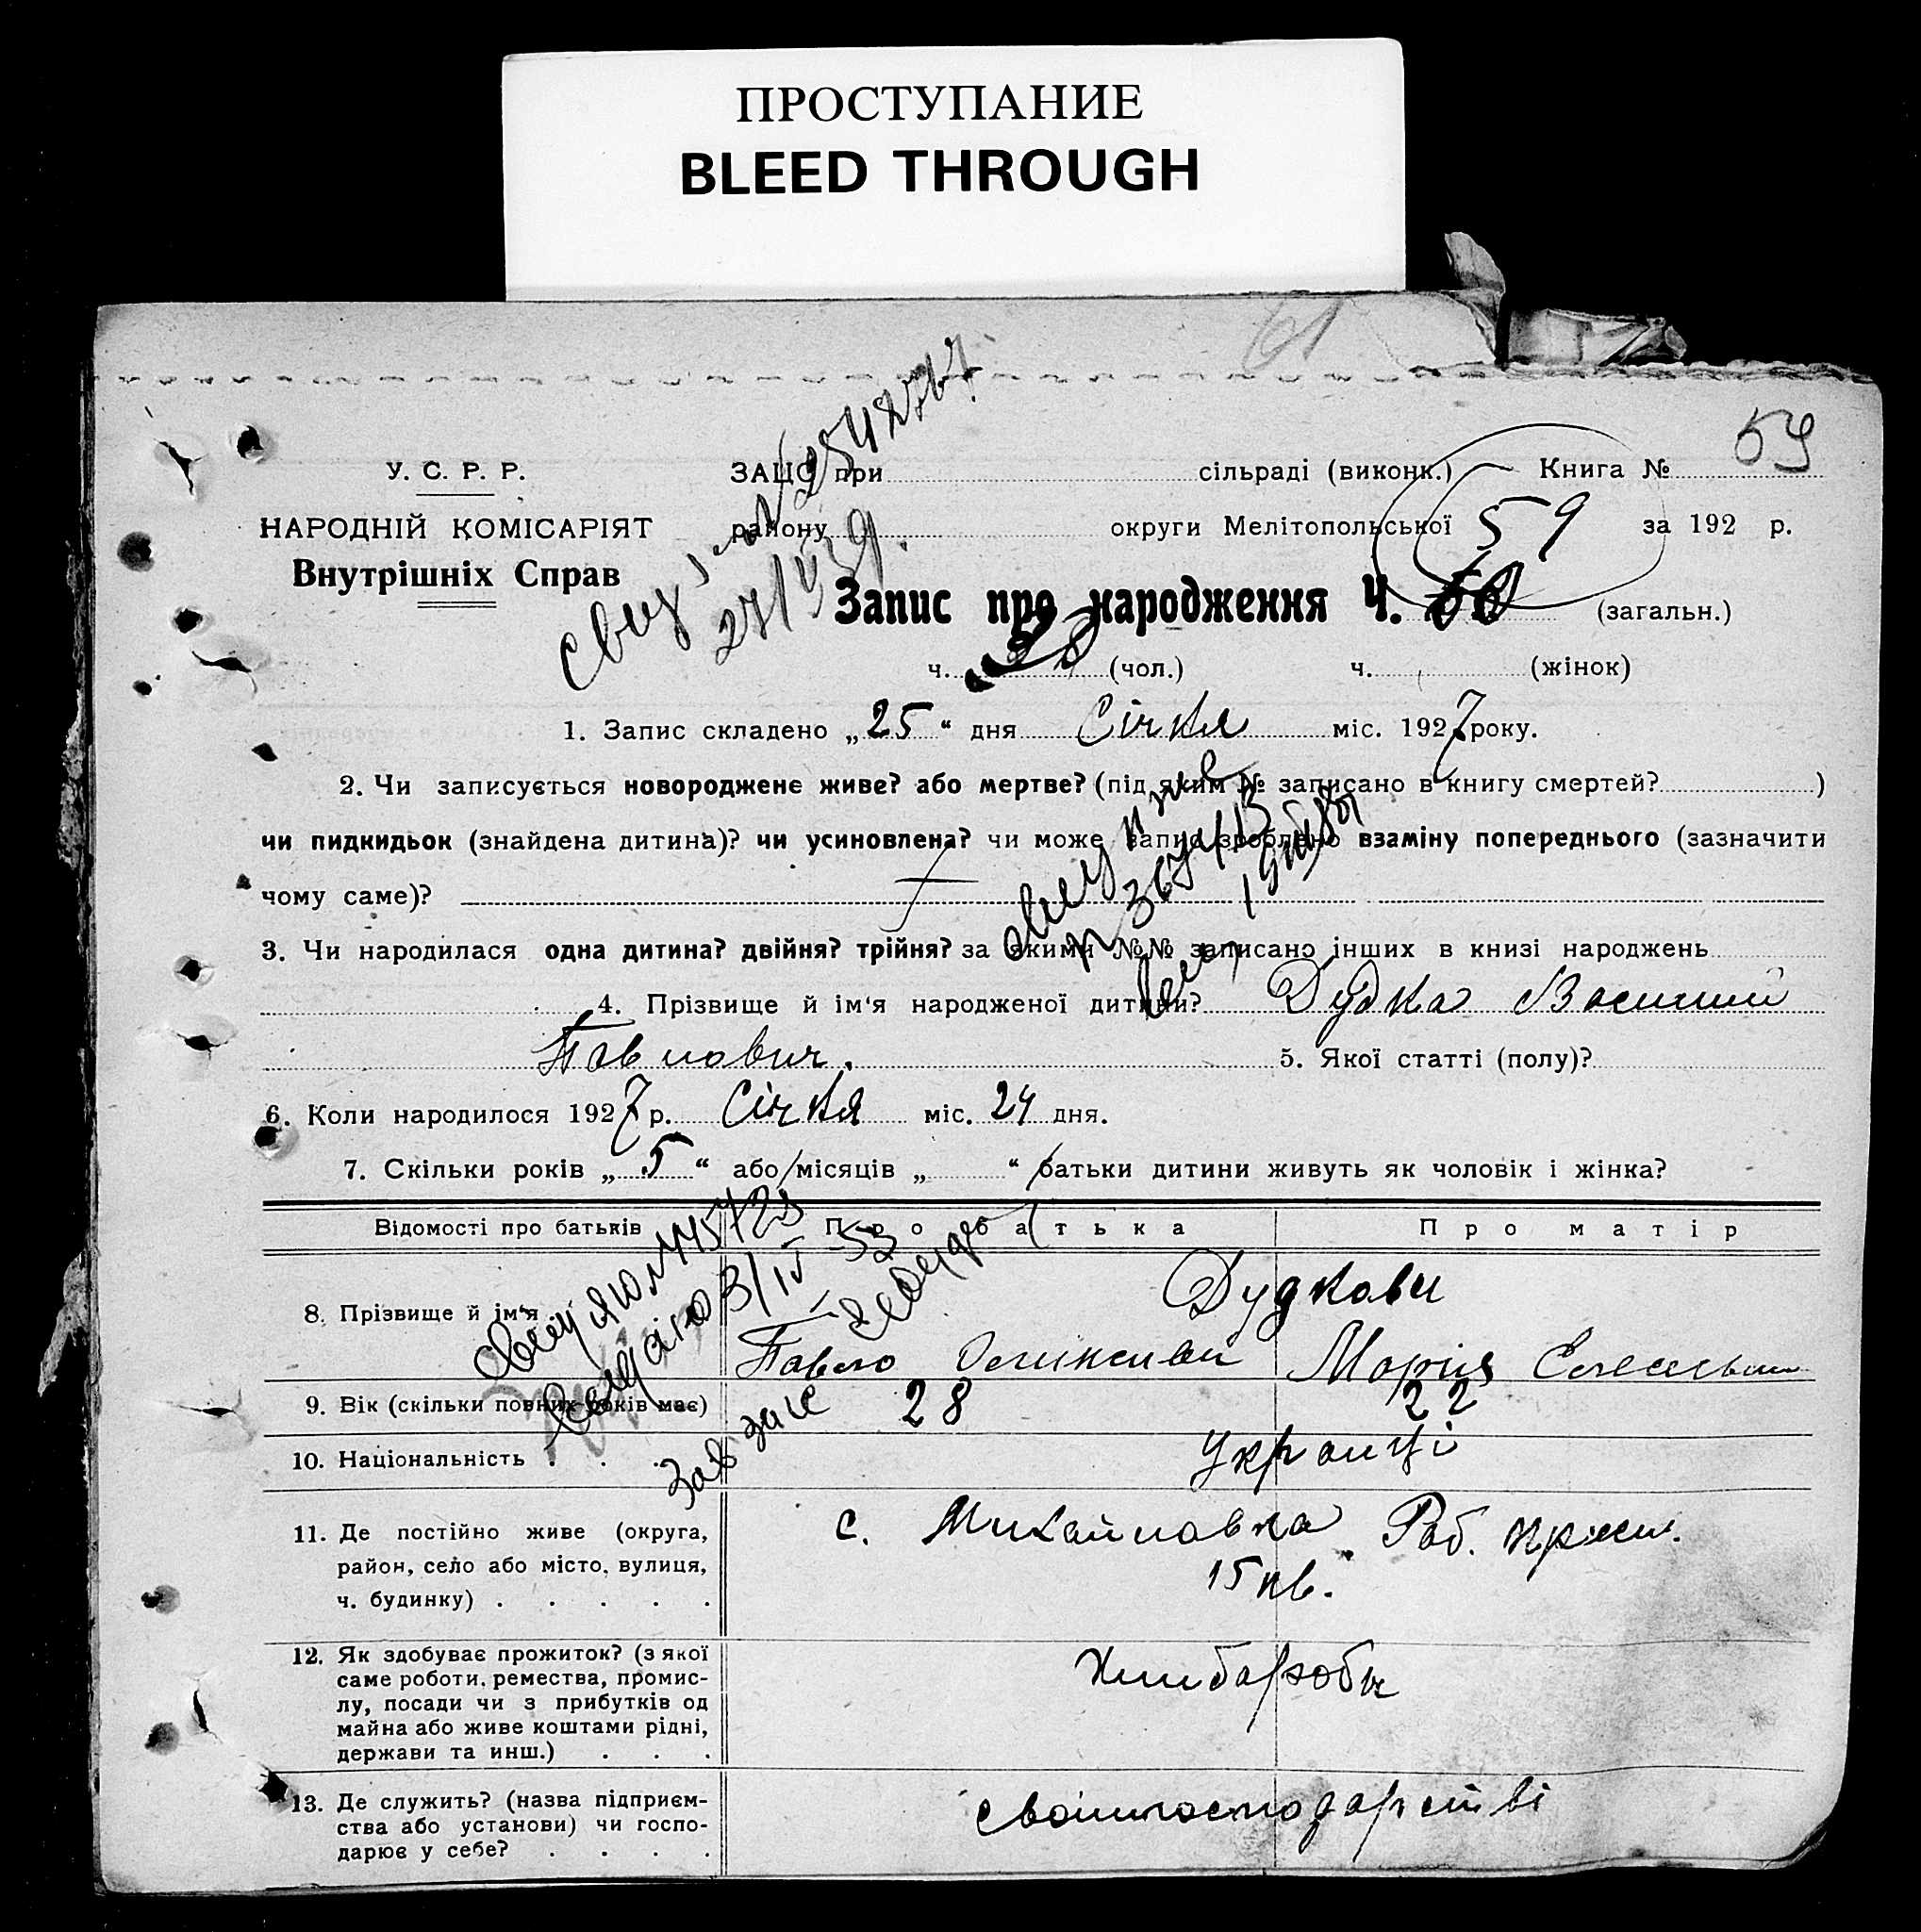 ПРОСТУПАНИЕ
BLEED THROUGH
61
59
У. С. Р. Р.
НАРОДНІЙ КОМІСАРІЯТ
Внутрішніх Справ
ЗАЦС при сільраді (виконк.) Книга №
району округи Мелітопольської 59 за 192 р.
Запис про народження Ч. (загальн.)
ч. (чол.) ч. (жінок)
27/V 39.
1. Запис складено „25“ дня Січня міс. 1927 року.
2. Чи записується новороджене живе? або мертве? (під яким № записано в книгу смертей? )
чи пидкидьок (знайдена дитина)? чи усиновлена? чи може запис зроблено взаміну попереднього (зазначити
чому саме)?
3. Чи народилася одна дитина? двійня? трійня? за якими №№ записано інших в книзі народжень
4. Прізвище й ім‘я народженої дитини? Дудка Василий
Павлович. 5. Якої статті (полу)?
6. Коли народилося 1927 р. Січня міс. 24 дня.
7. Скільки років „5“ або місяців „ “ батьки дитини живуть як чоловік і жінка?
Відомості про батьків Про батька Про матір
8. Прізвище й ім‘я Дудкови
Павло Марія
9. Вік (скільки повних років має) 28 22
10. Національність . . . Українці
11. Де постійно живе (округа,
район, село або місто, вулиця,
ч. будинку) . . . . .
с. Михайловка Роб.
15 кв.
12. Як здобуває прожиток? (з якої
саме роботи, ремества, промис-
лу, посади чи з прибутків од
майна або живе коштами рідні,
держави та инш.) . . .
Хлибароби
13. Де служить? (назва підприєм-
ства або установи) чи госпо-
дарює у себе? . . . .
своим господарстві